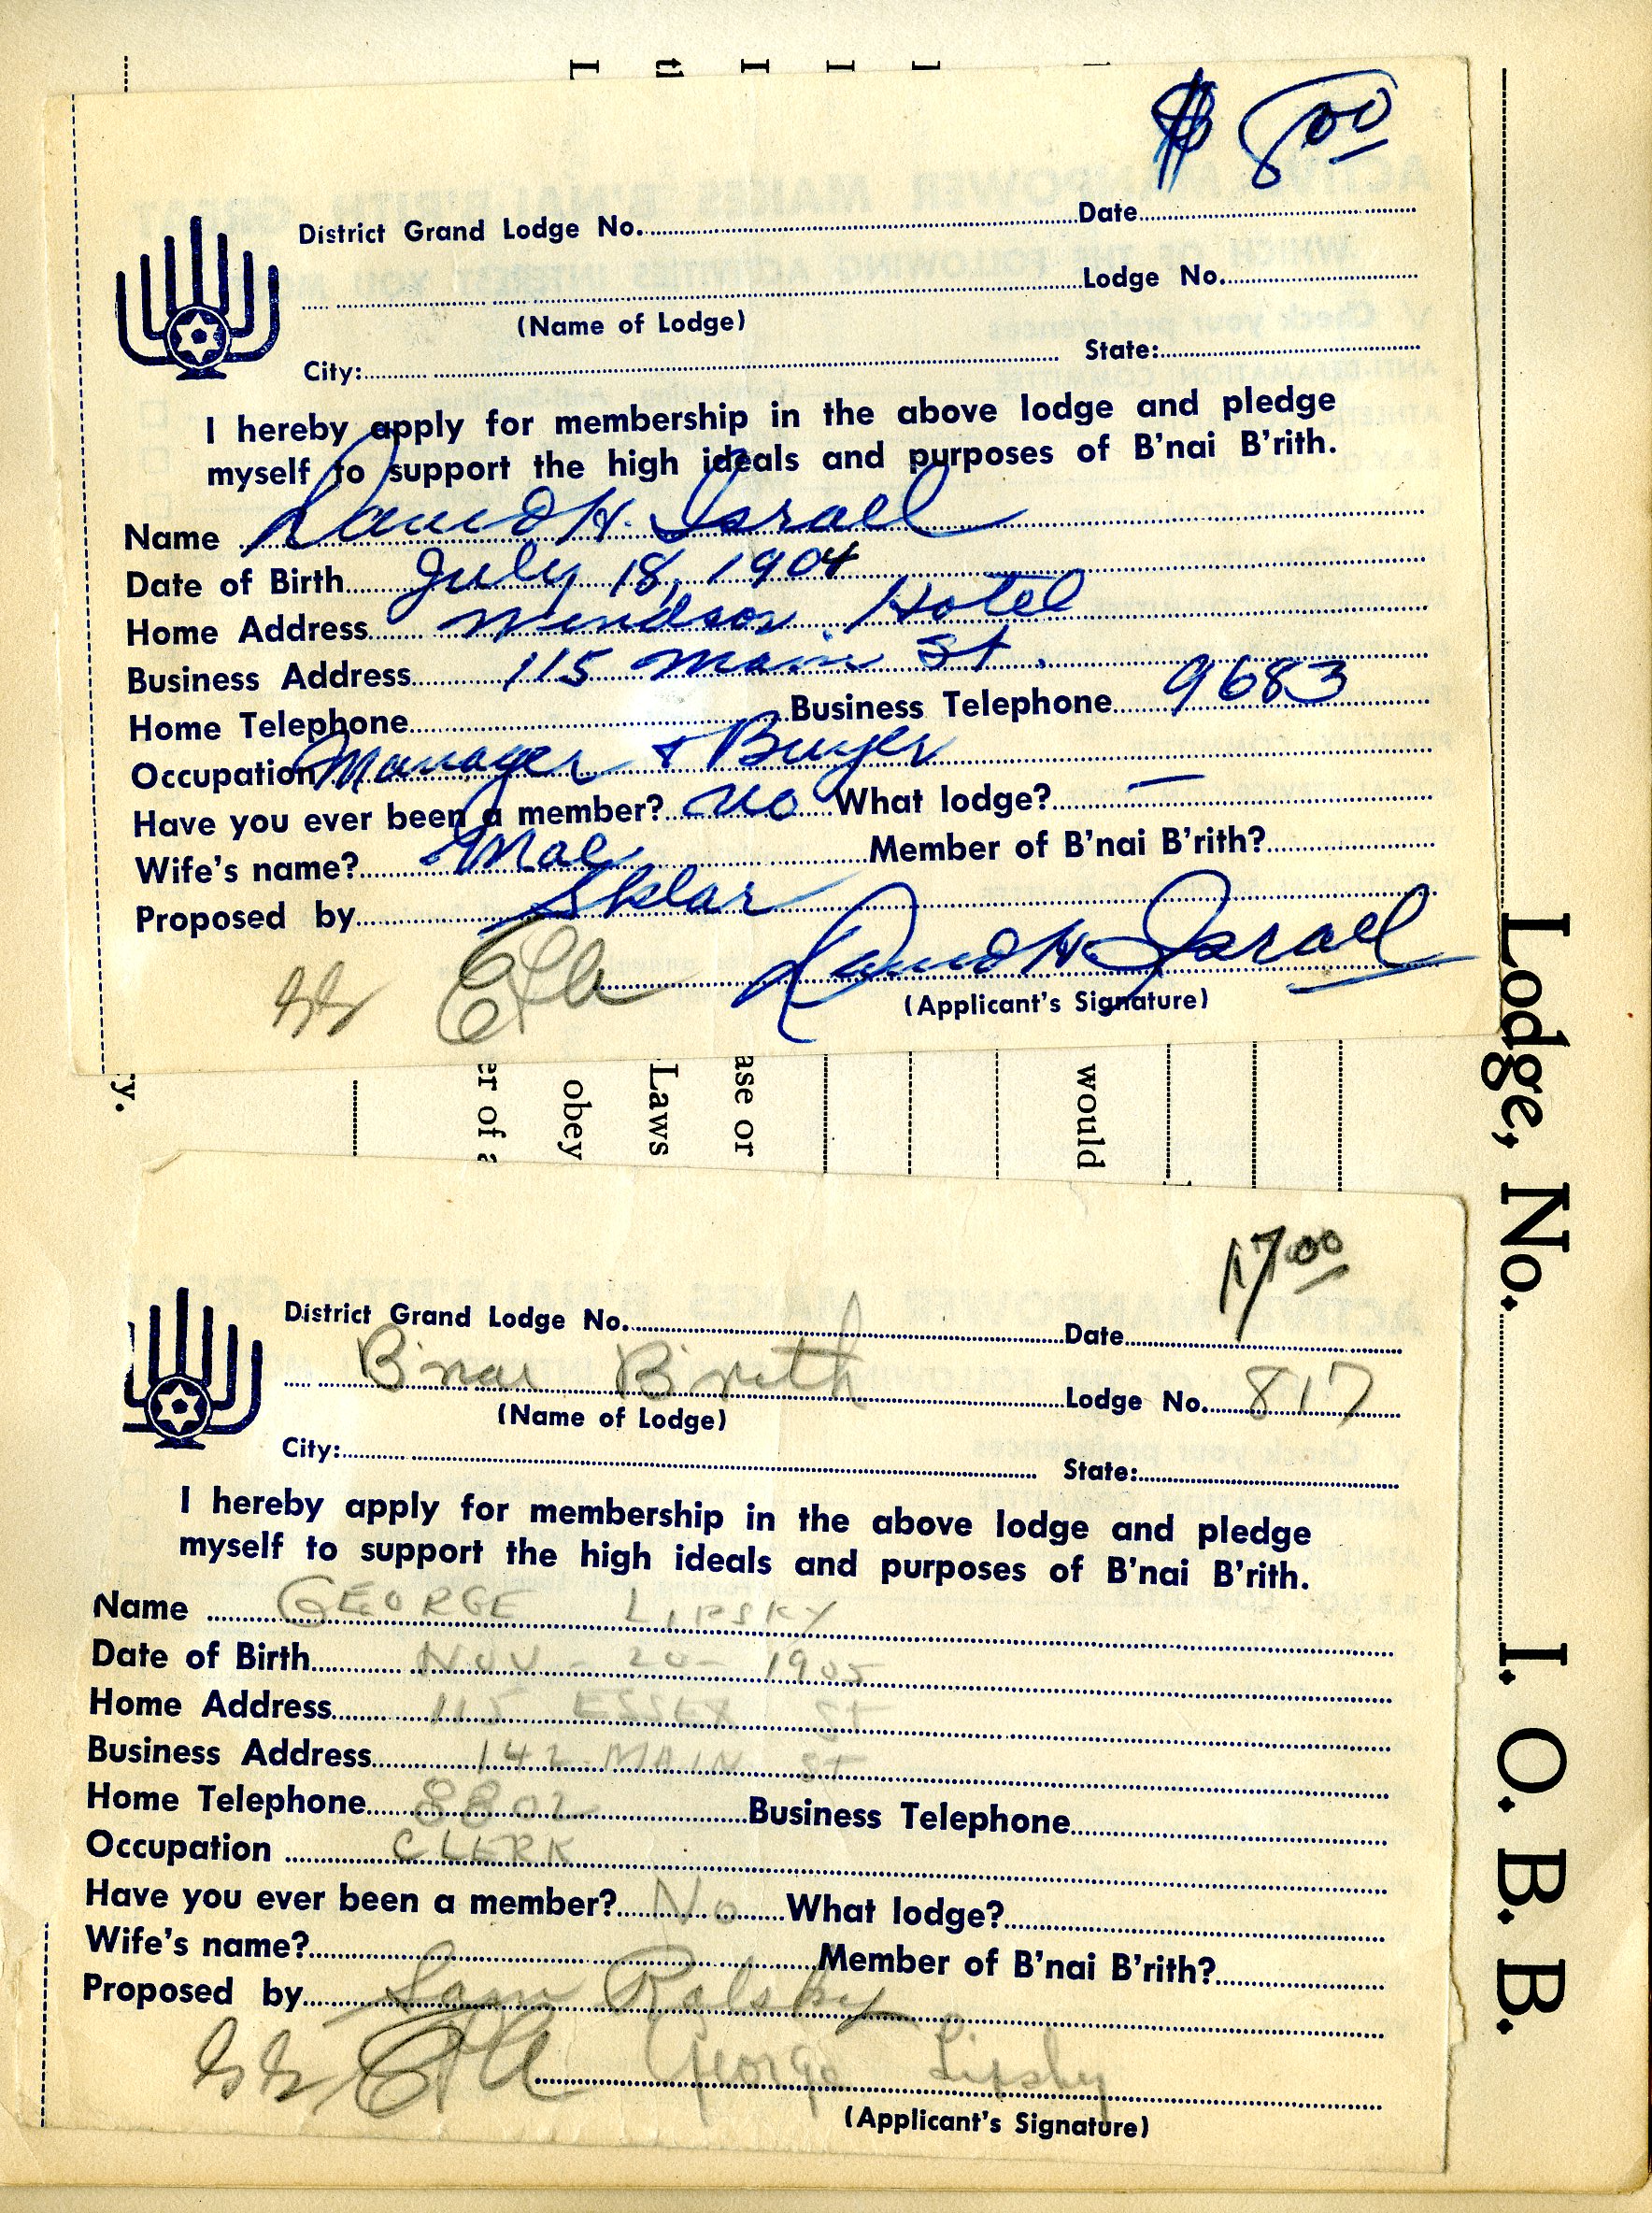 $ 8.00
District Grand Lodge No. Date
Lodge No.
(Name of Lodge)
City: State:
I hereby apply for membership in the above lodge and pledge
myself to support the high ideals and purposes of B'nai B'rith.
Name David H. Israel
Date of Birth July 18, 1904
Home Address Windsor Hotel
Business Address 115 Main St.
Home Telephone Business Telephone 9683
Occupation Manager + Buyer
Have you ever been a member? No What lodge? —
Wife's name? Mae Member of B'nai B'rith?
Proposed by Sklar
David H. Israel
(Applicant's Signature)
ry.
er of a
obey
Laws
ase or
would
Lodge, No. I. O. B. B.
17.00
District Grand Lodge No. Date
B'nai B'rith Lodge No. 817
(Name of Lodge)
City: State:
I hereby apply for membership in the above lodge and pledge
myself to support the high ideals and purposes of B'nai B'rith.
Name GEORGE LIPSKY
Date of Birth NOV - 20 - 1905
Home Address 115 ESSEX St
Business Address 142 MAIN St
Home Telephone 8802 Business Telephone
Occupation CLERK
Have you ever been a member? No What lodge?
Wife's name? Member of B'nai B'rith?
Proposed by Sam Ralsky
George Lipsky
(Applicant's Signature)